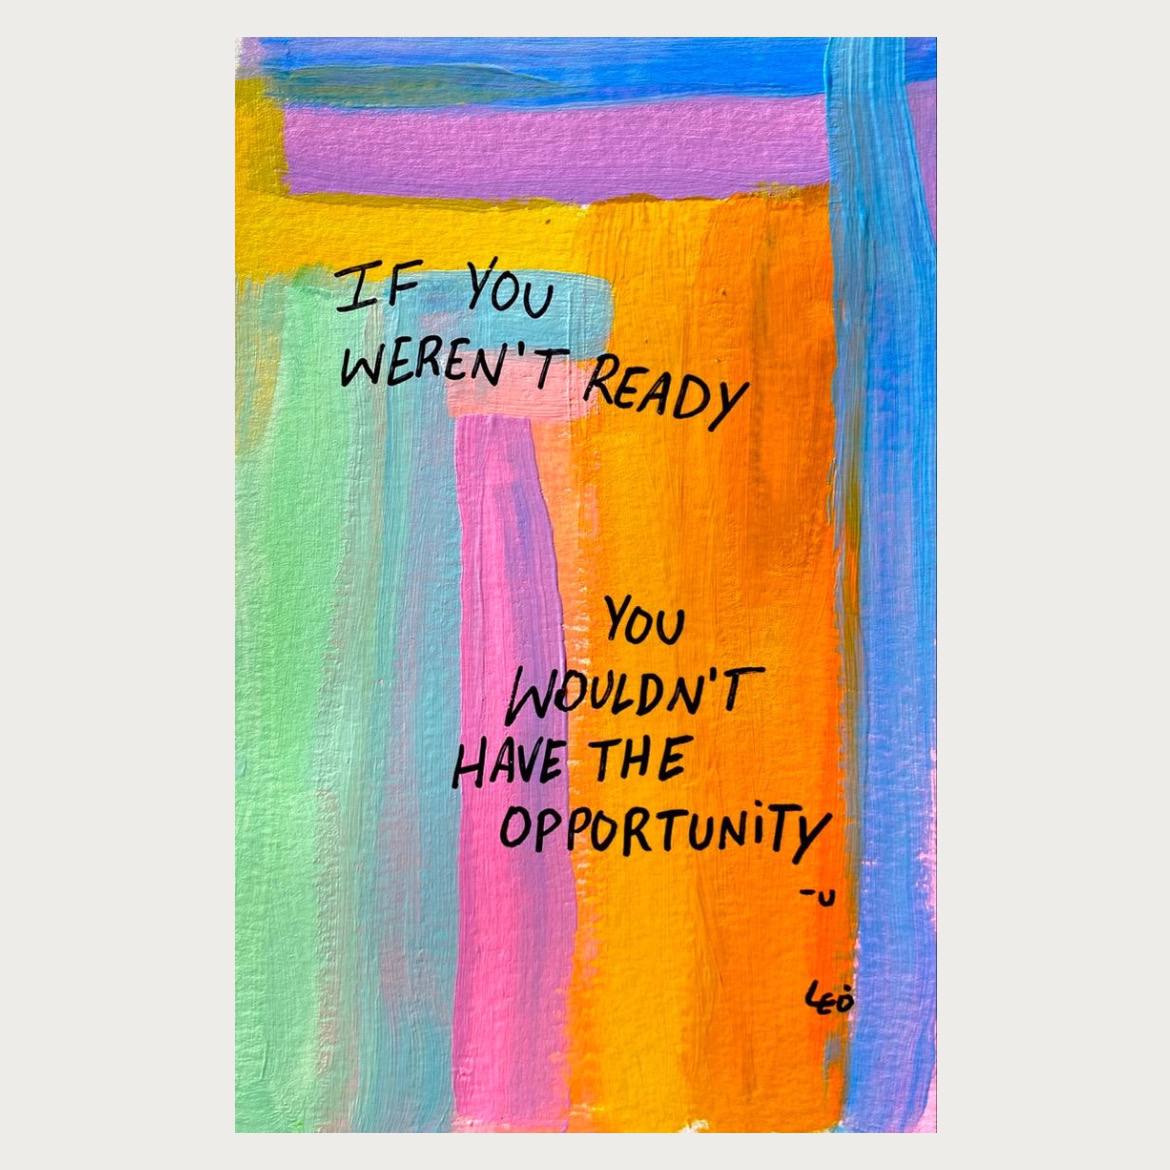 IF YOU
WEREN'T READY
YOU
WOULDN'T
HAVE THE
OPPORTUNiTY
-u
LEO